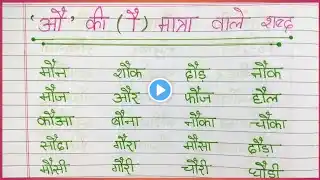 'औ' की (ौ) मात्रा वाले शब्द
मौन शौक दौड़ नौक
मौज और फौज हौल
कौआ बौना नौका चौका
सौदा गौरा मौसा दौडा
मौसी गौरी चौरी चौड़ी